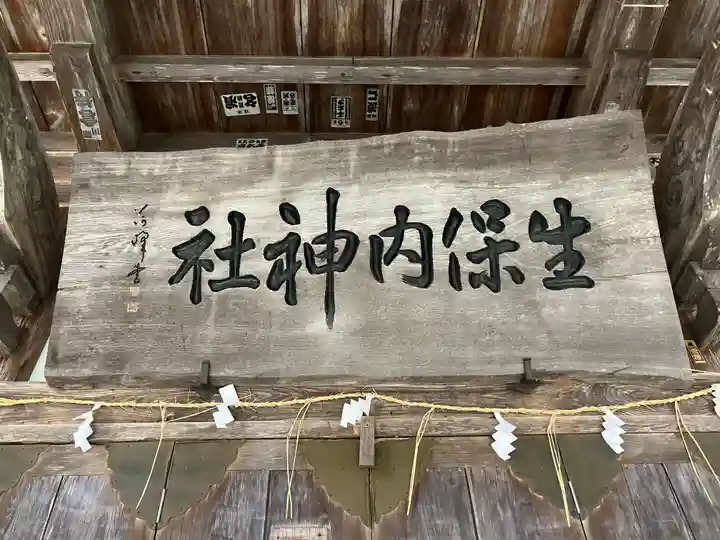 生保内神社